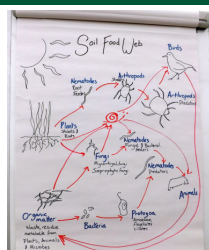 Soil Food Web
Birds
Nematodes
Root
Arthropods
Shredders
Arthropods
Predators
Plants
Shoots &
Roots
Nematodes
Fungal & Bacterial
feeders
Fungi
Mycorrhizal fungi
Saprophytic fungi
Nematodes
Predators
Animals
Organic
matter
Waste, residue
metabolites from
Plants, Animals
& Microbes
Bacteria
Protozoa
Amoebae
Flagellates
Ciliates